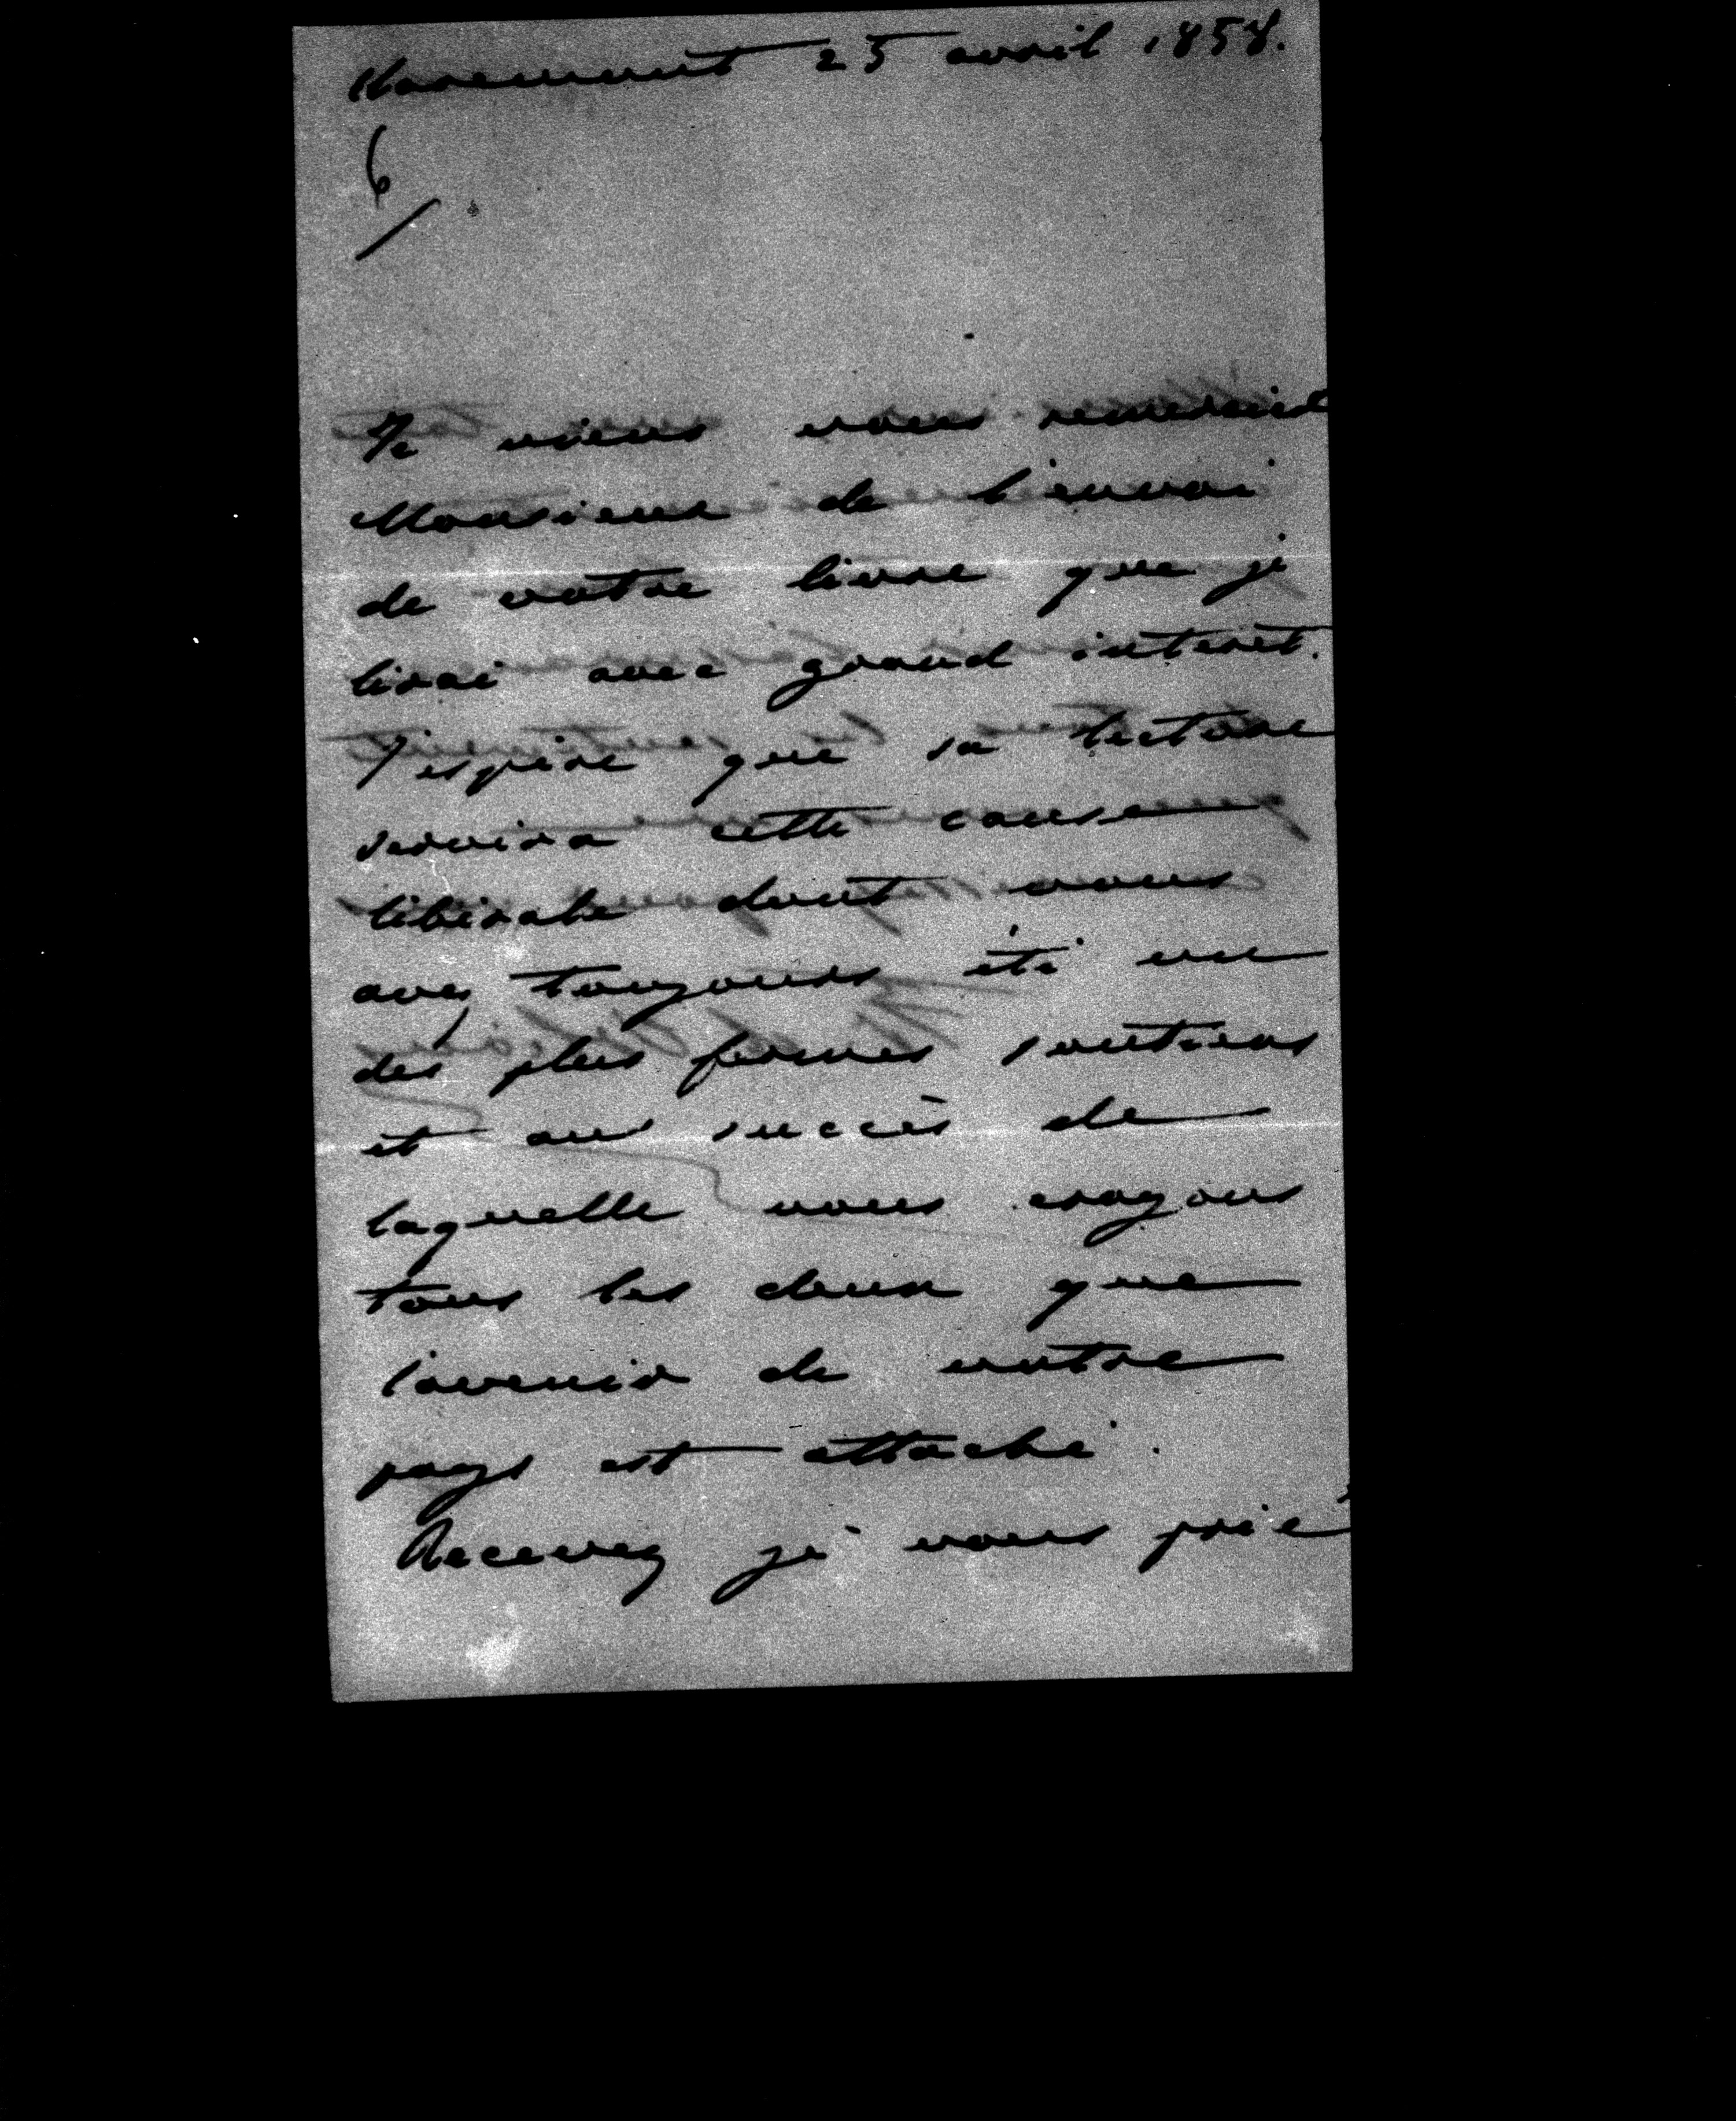 Claremont 25 avril 1858.
6/
Je viens vous remercier
Monsieur de l'envoi
de votre livre que je
lirai avec grand interêt.
J'espère que sa lecture
servira cette cause
libérale dont vous
avez toujours été un
des plus fermes soutiens
et au succès de
laquelle nous croyons
tous les deux que
l'avenir de notre
pays est attaché.
Recevez je vous prie